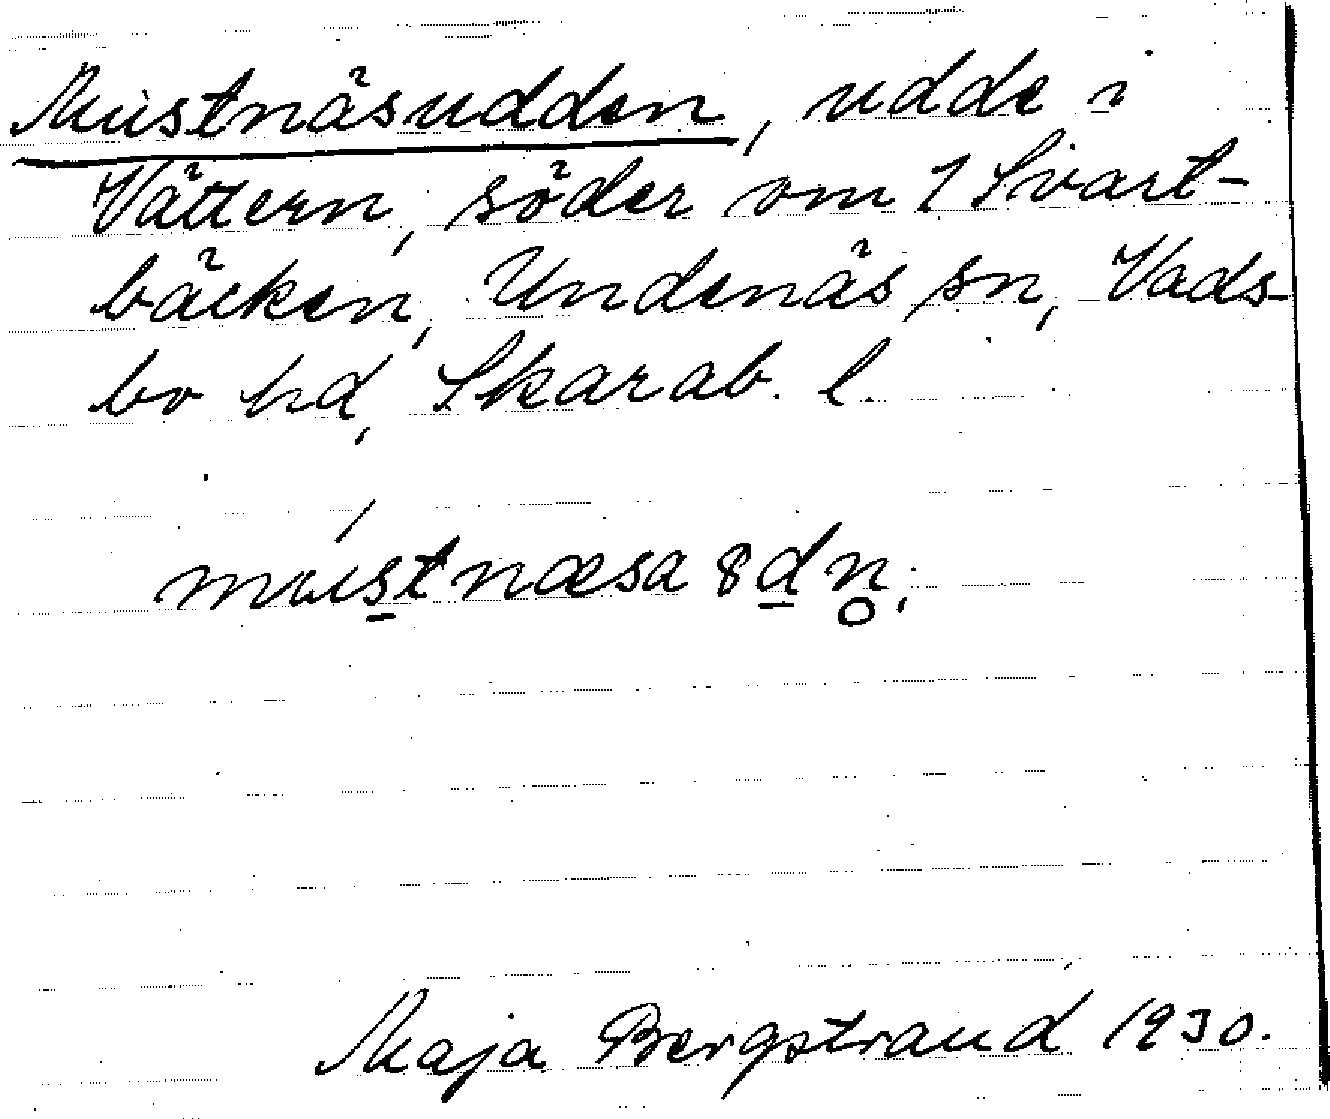 Mustnäsudden, udde i
Vättern, söder om 1 Svart-
bäcken, Undenäs sn, Vads-
bo hd, Skarab. l.
mustnæsa 8dn̥.
Maja Bergstrand 1930.